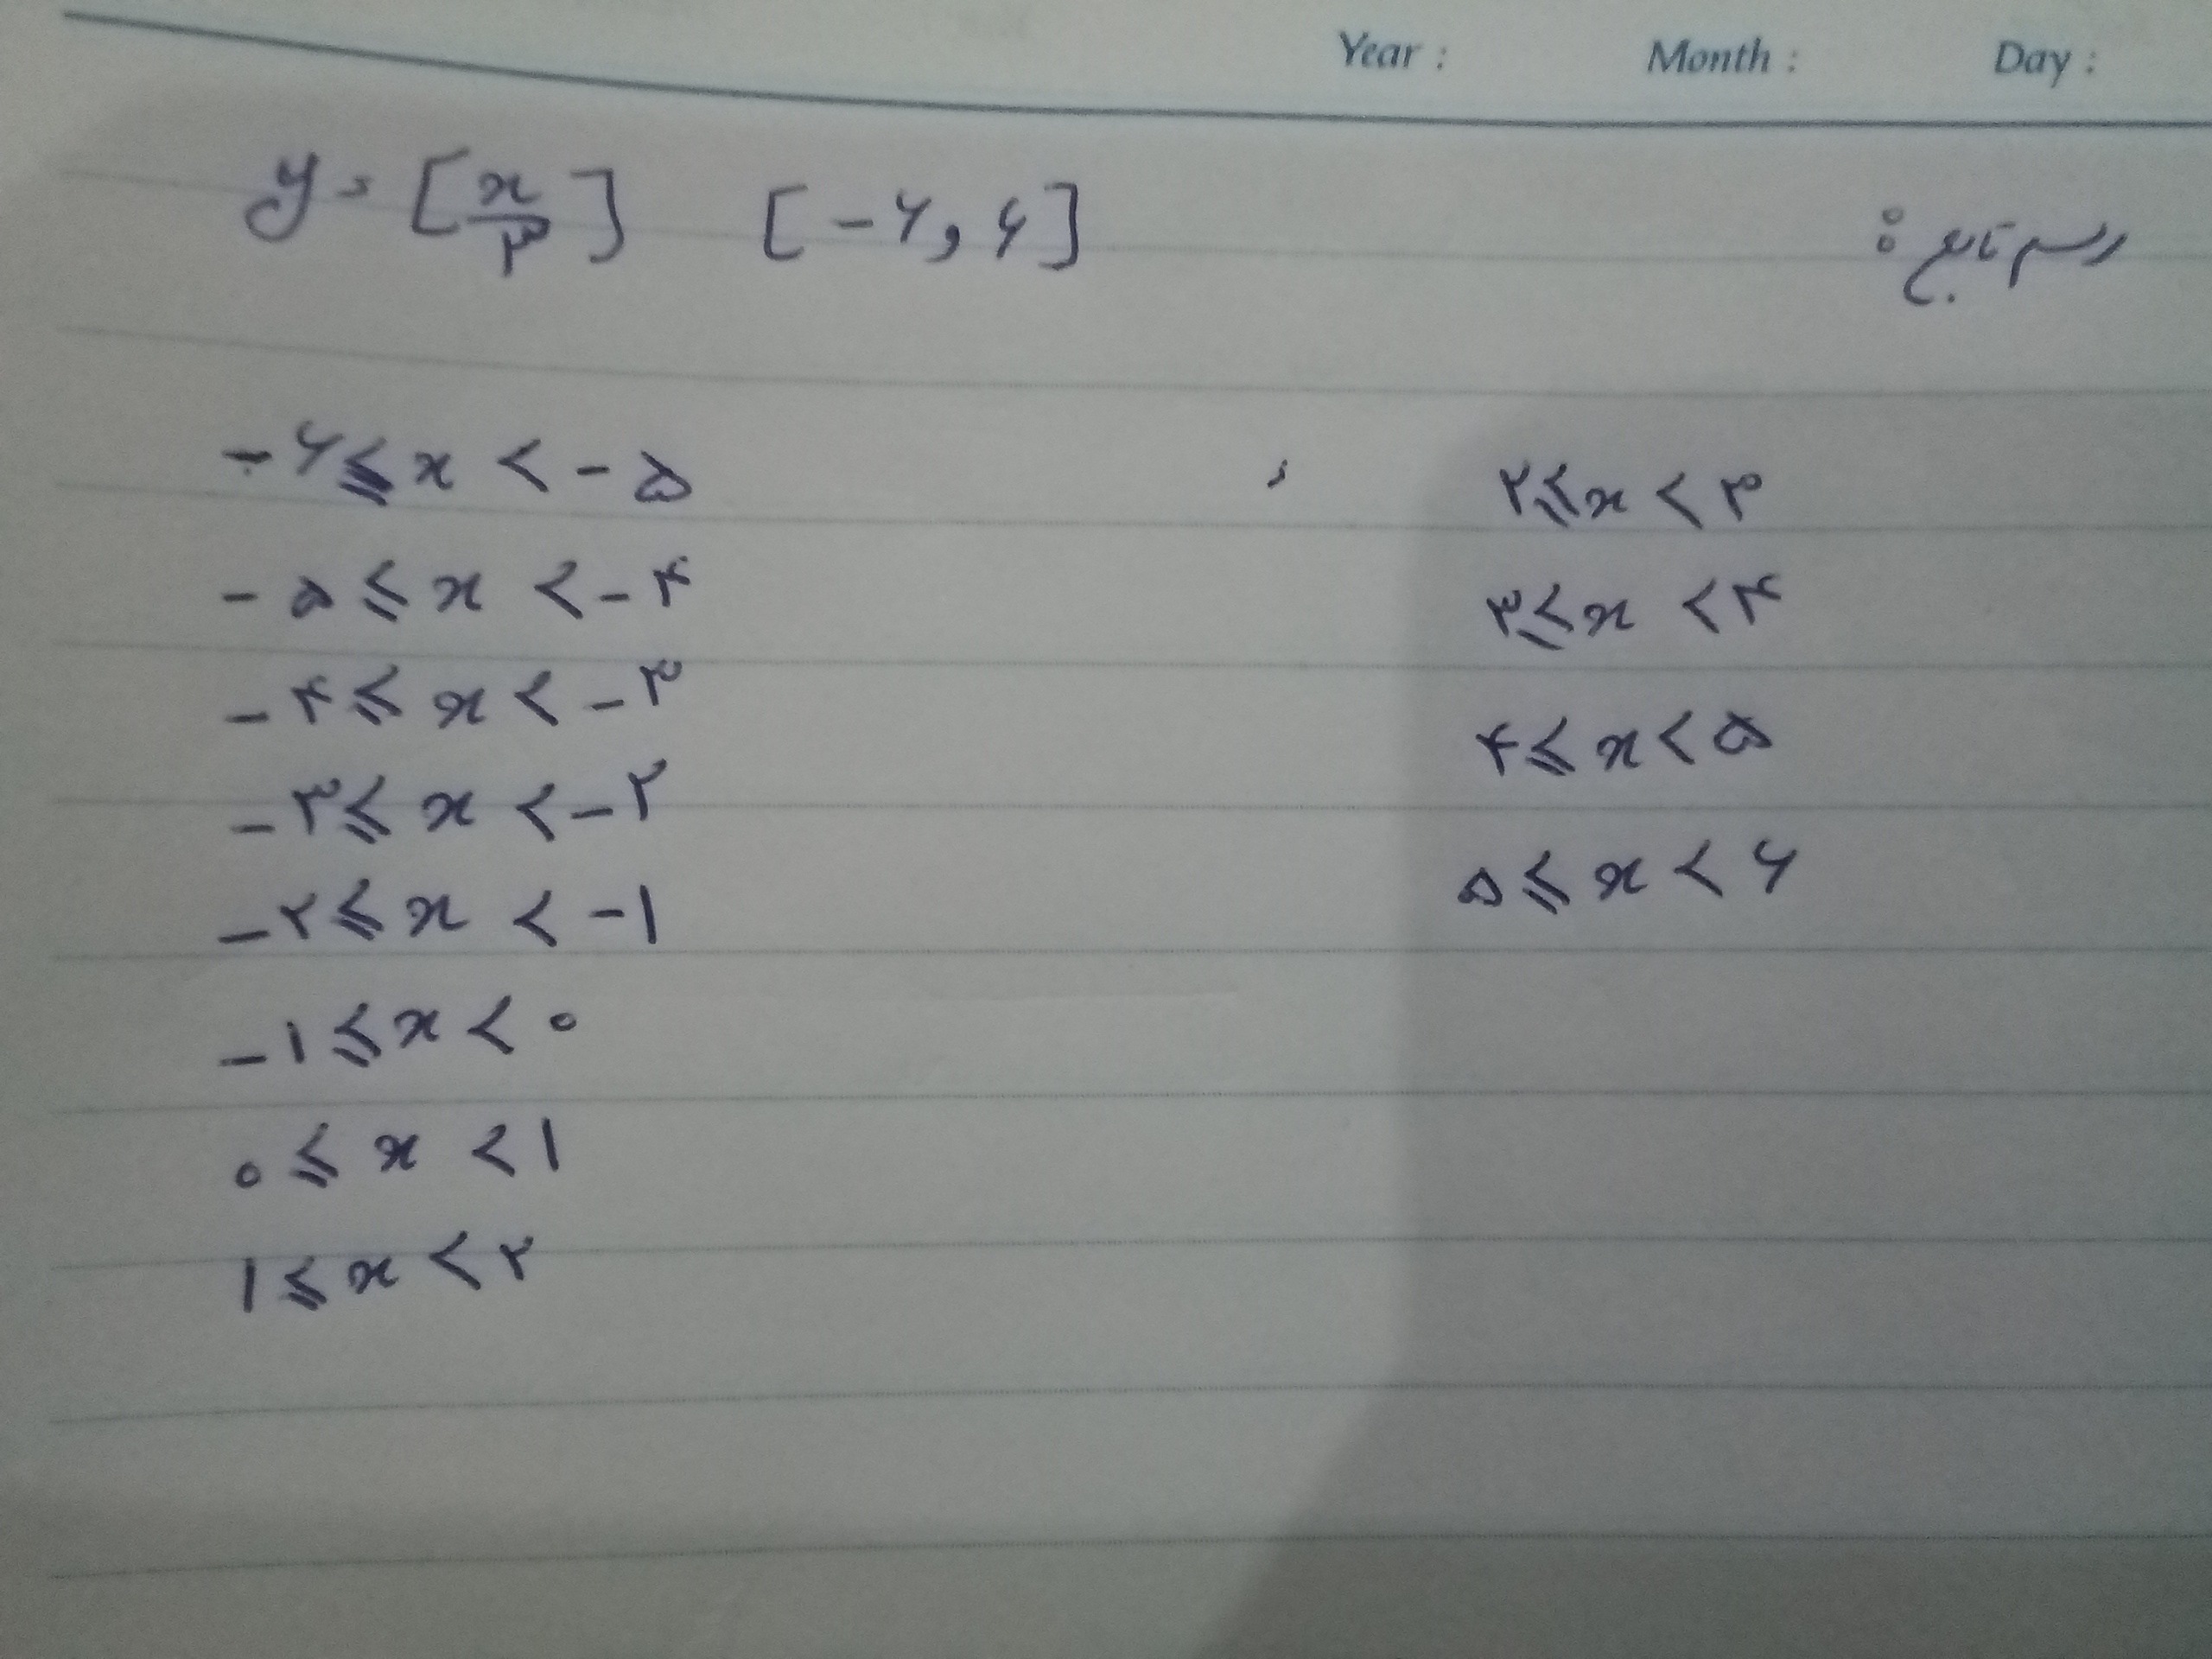 Year : Month : Day :
رسم تابع :
y = [x/۳] [-۶, ۶]
-۶ ≤ x < -۵
-۵ ≤ x < -۴
-۴ ≤ x < -۳
-۳ ≤ x < -۲
-۲ ≤ x < -۱
-۱ ≤ x < ۰
۰ ≤ x < ۱
۱ ≤ x < ۲
۲ ≤ x < ۳
۳ ≤ x < ۴
۴ ≤ x < ۵
۵ ≤ x < ۶